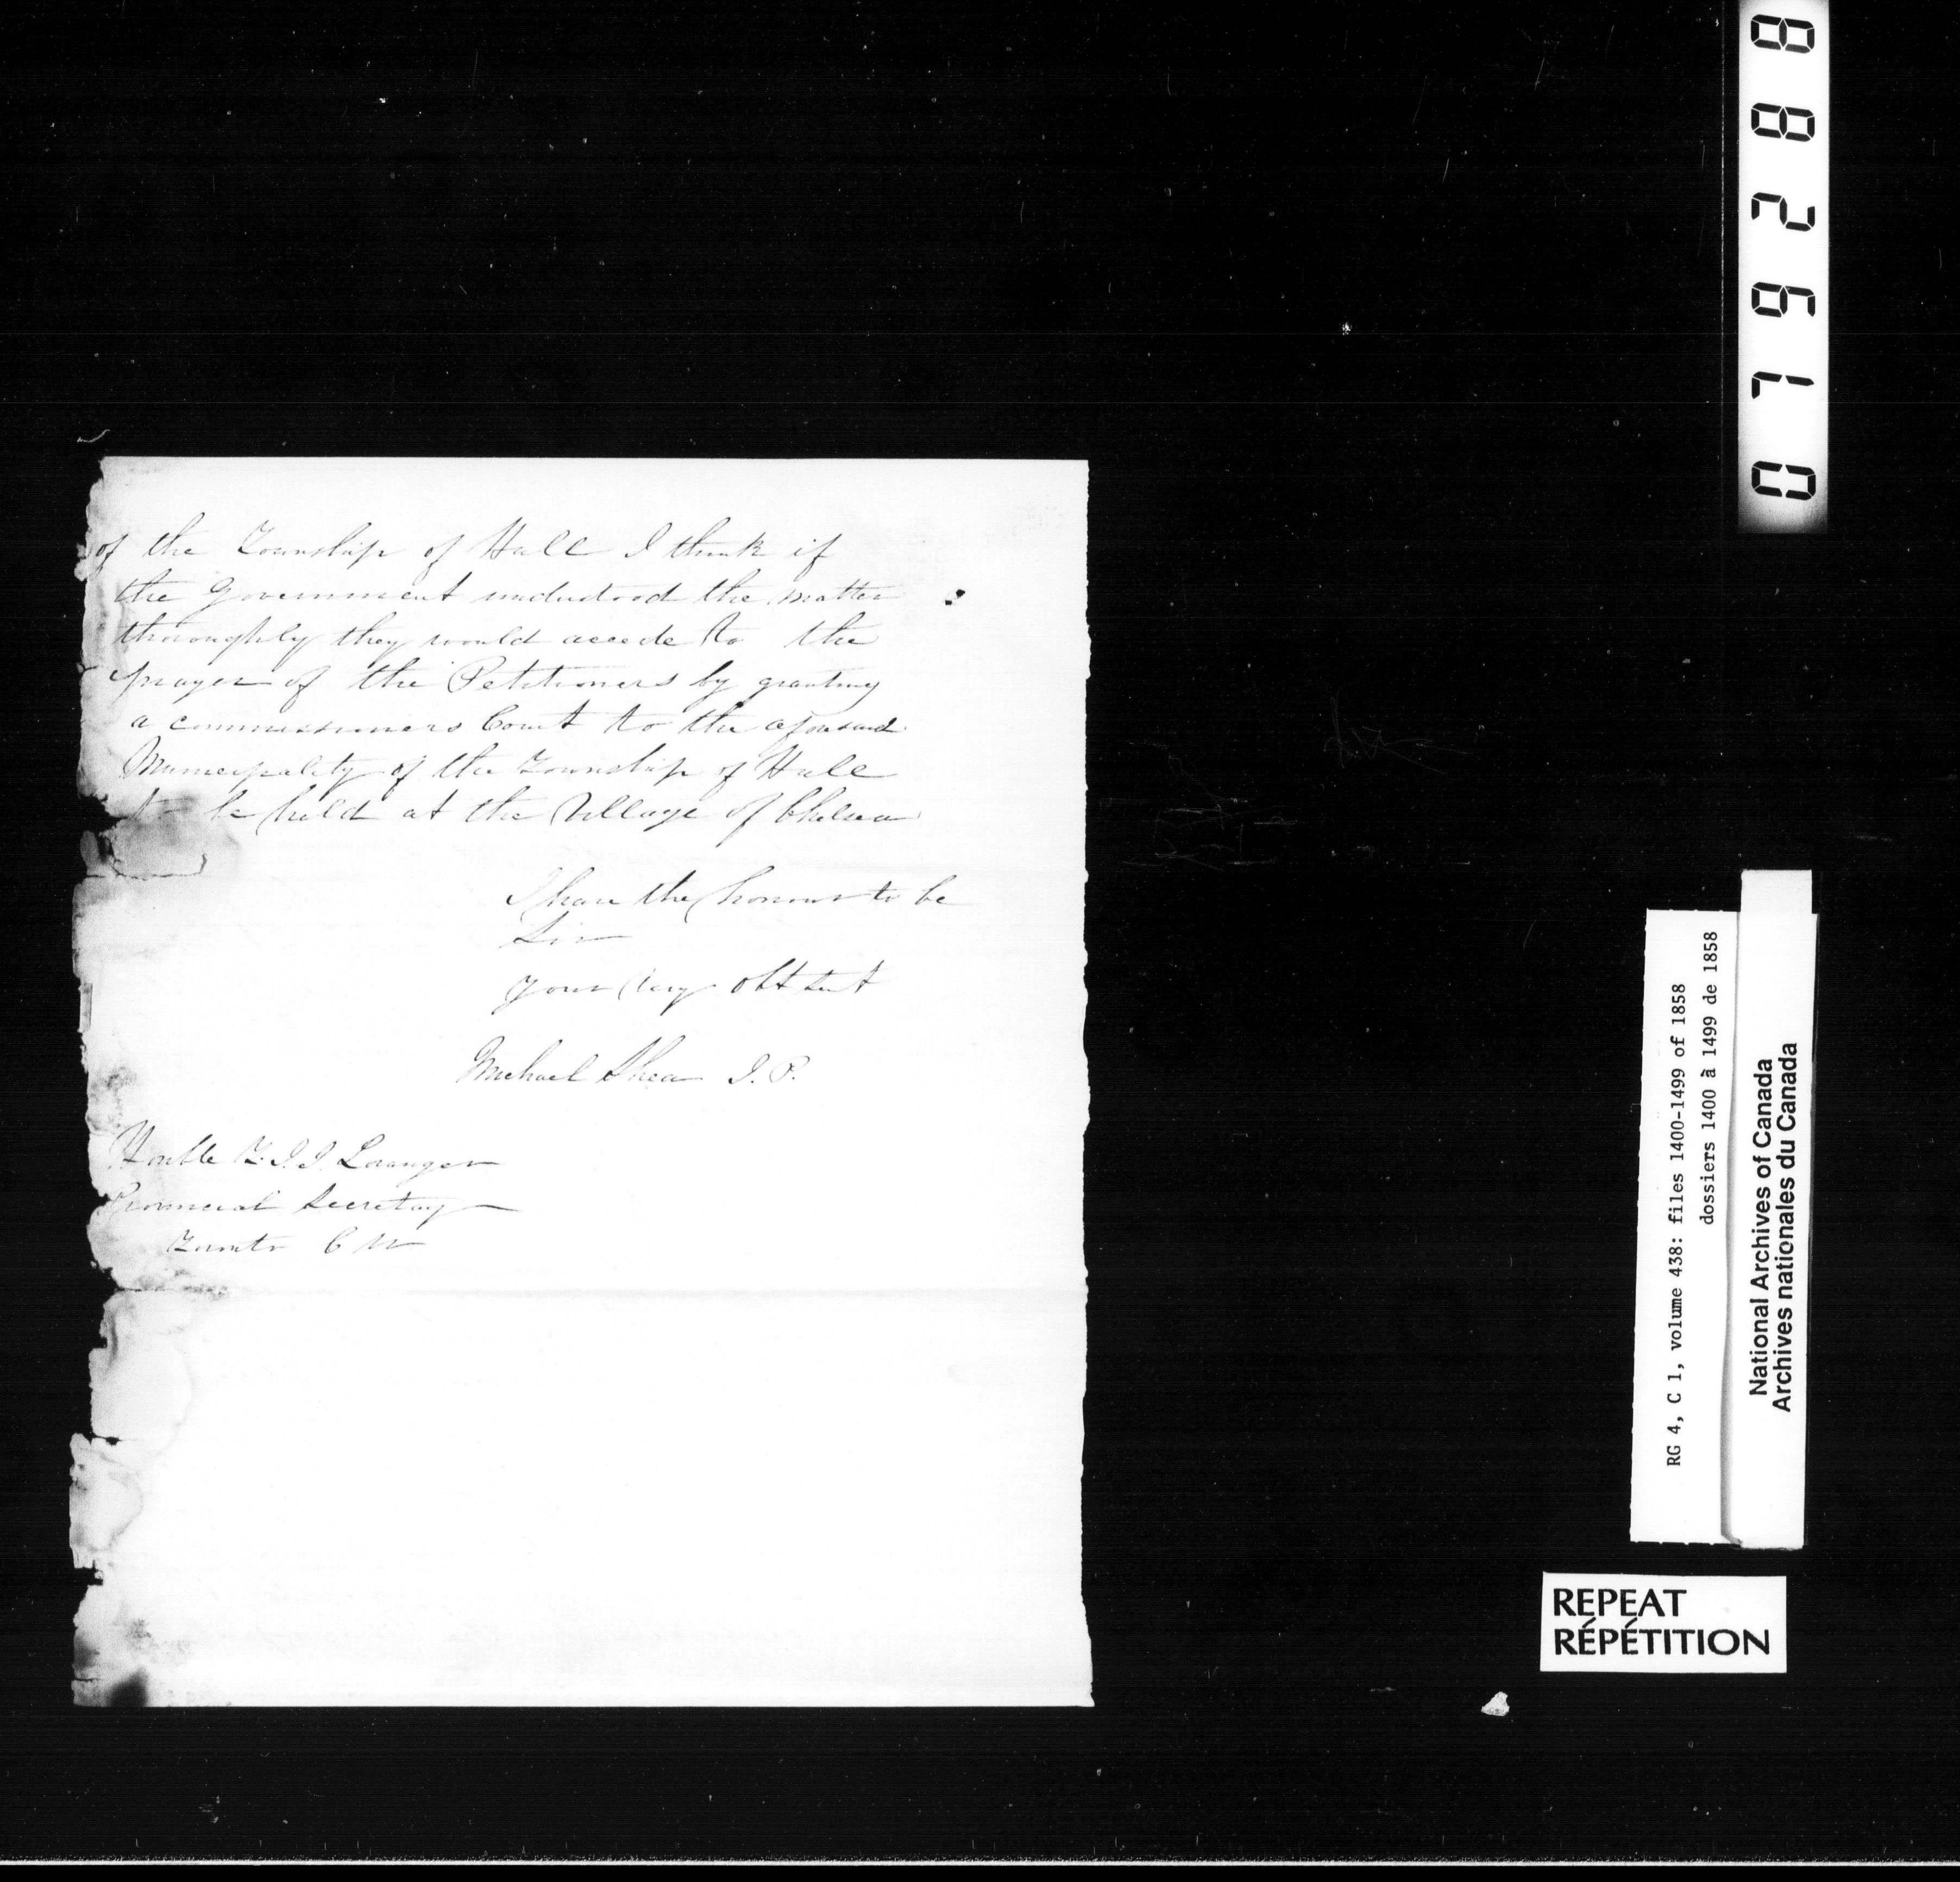 of the Township of Hull I think if
the Government understood the matter
thoroughly they would accede to the
prayer of the Petitioners by granting
a commissioners Court to the aforesaid
Municipality of the Township of Hull
to be held at the Village of Chelsea
I have the honour to be
Sir
your very obt sert
Michael Shea J. P.
Honble T. J. J. Loranger
Provincial Secretary
Toronto C W
076288
RG 4, C 1, volume 438: files 1400-1499 of 1858
dossiers 1400 à 1499 de 1858
National Archives of Canada
Archives nationales du Canada
REPEAT
RÉPÉTITION